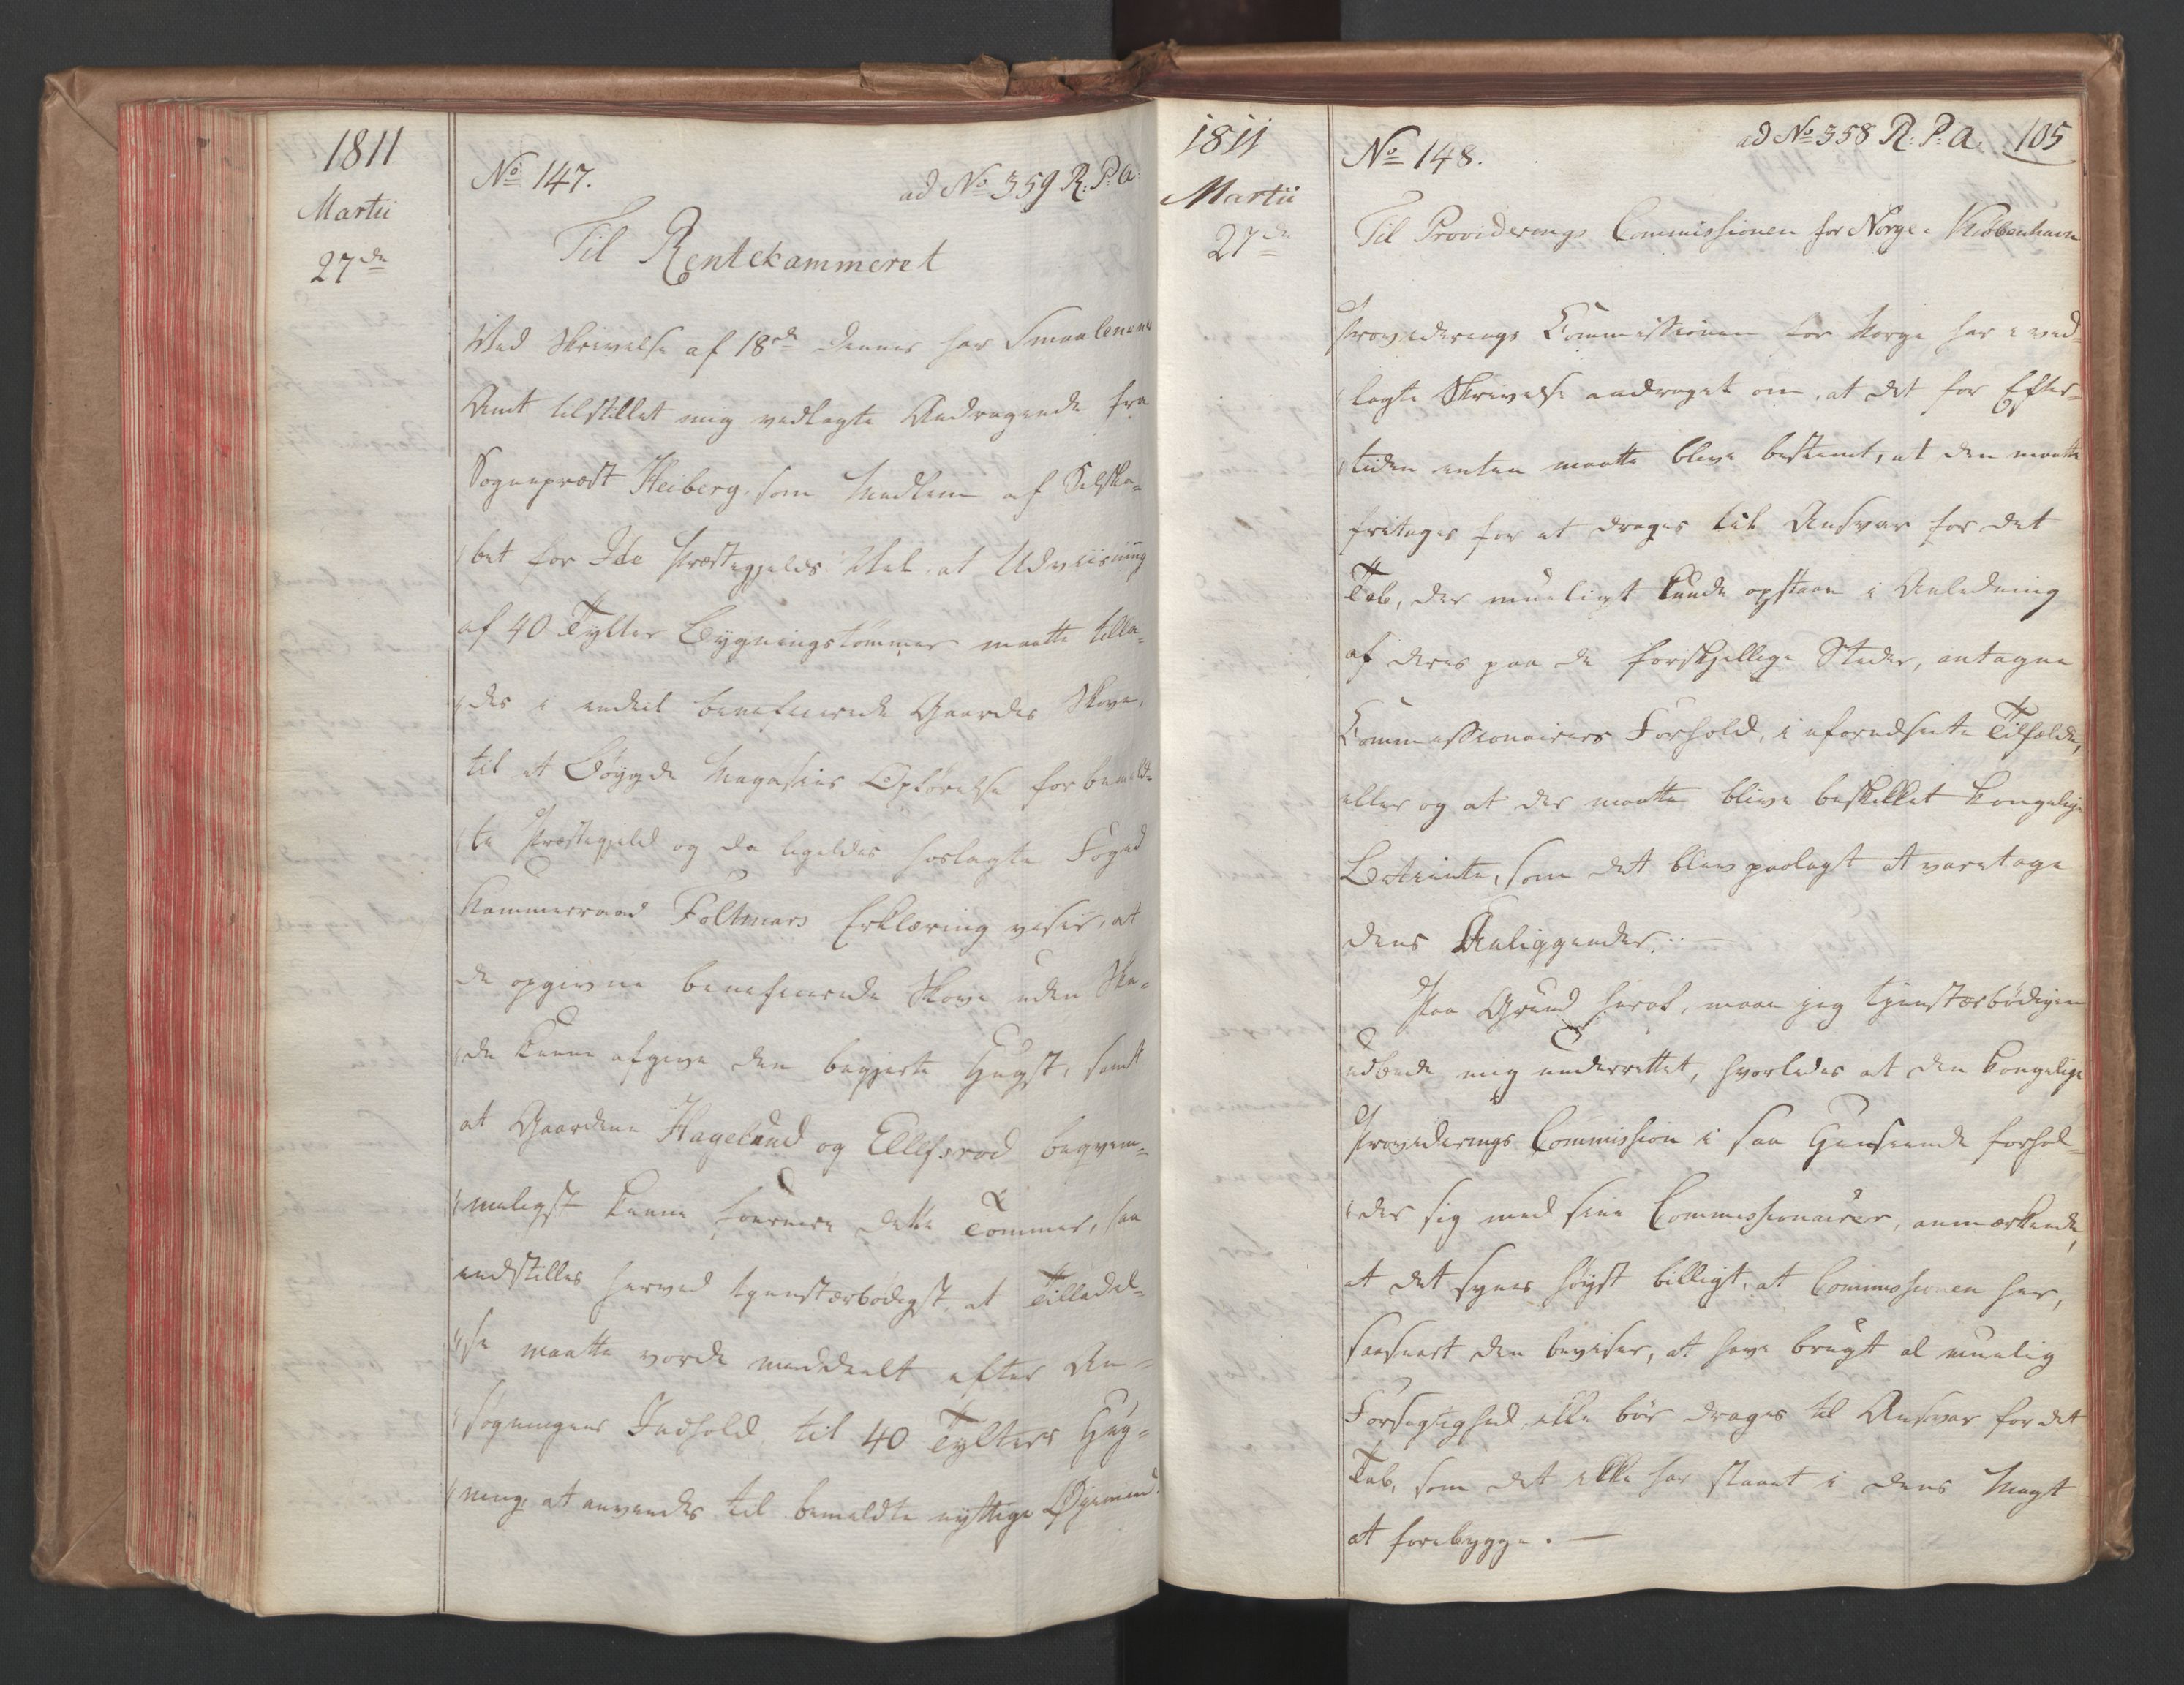 1811
Martii
27de
No 147.
ad No 359 R: P: A:
Til Rentekammeret
Ved Skrivelse af 18de dennes har Smaalenenes
Amt tilstillet mig vedlagte Andragende fra
Sognepræst Heiberg, som Medlem af Selska-
bet for Ide Præstegjelds Vel, at Udviisning
af 40 Tylter Bygningstømmer maatte tilla-
des i endeel beneficerede Gaardes Skove,
til et Bøygde Magasins Opførelse for bemeld-
te Præstegjeld og da ligeledes hoslagte Foged
Kammerraad Foltmars Erklæring viser, at
de opgivne beneficerede Skove uden Ska-
de kunne afgive den begjerte Hugst, samt
at Gaardene Hagelund og Ellfsrød beqvem-
meligst kunne fournere dette Tømmer, saa
indstilles herved tjenstærbødigst at Tilladel-
se maatte vorde meddeelt efter An-
søgningens Indhold, til 40 Tylters Hug-
ning, at anvendes til bemeldte nyttige Øjemed.
1811
Martii
27de
No 148.
ad No 358 R: P: A. 105
Til Proviederings Commissionen for Norge i Kiöbenhavn
Proviederings Commissionen for Norge har i ved-
lagte Skrivelse andraget om, at det for Efter-
tiden enten maatte blive bestemt, at den maatte
fritages for at drages til Ansvar for det
Tab, der mueligt kunde opstaae i Anledning
af deres paa de forskjellige Steder, antagne
Commissionairers Forhold, i uforudseete Tilfælde,
eller og at der maatte blive beskikket kongelige
Betiente, som det blev paalagt at varetage
dens Anliggender. —
Paa Grund heraf, maae jeg tjenstærbødigen
udbede mig underrettet, hvorledes at den kongelige
Proviederings Commission i saa Henseende forhol-
der sig med sine Commissionairer, anmærkende,
at det synes høyst billigt, at Commissionen her,
saasnart den beviser, at have brugt al muelig
Forsigtighed ikke bør drages til Ansvar for det
Tab, som det ikke har staaet i dens Magt
at forebygge. —